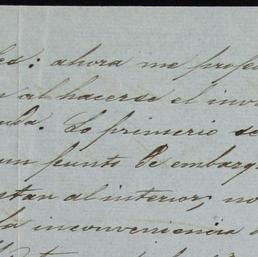 les: ahora me profe
n al hacerse el inv
uba. Lo primerio se
un punto de embarq
ntar al interior; no
la inconveniencia d